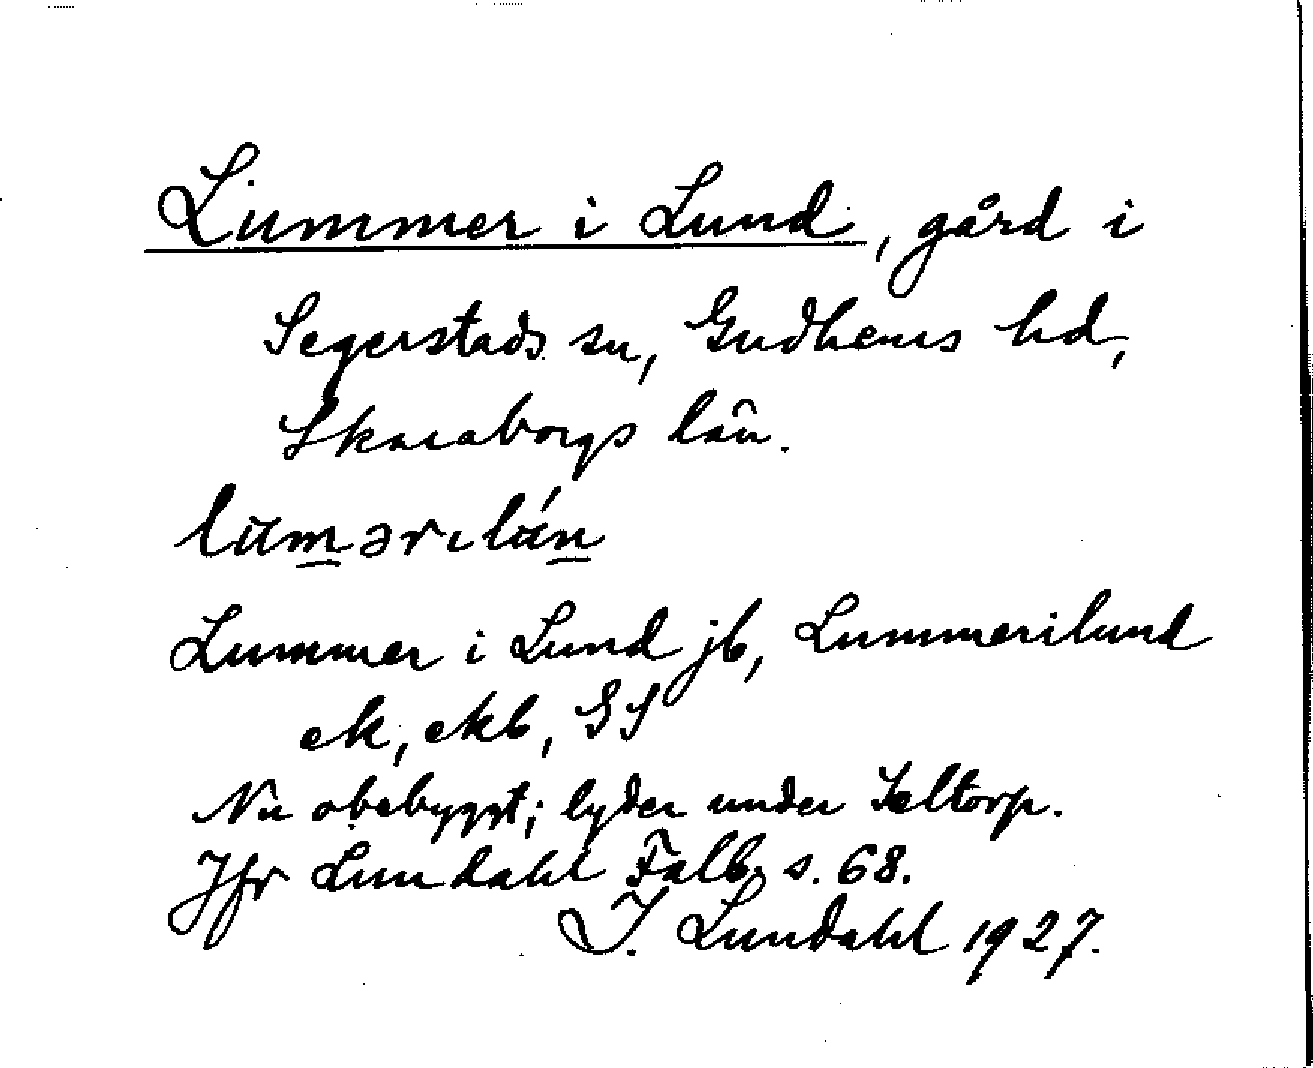 Lummer i Lund, gård i
Segerstads sn, Gudhems hd,
Skaraborgs län.
Lummer i Lund jb, Lummerilund
ek, ekb, GS
Nu obebyggt; lyder under Seltorp.
Jfr Lundahl Falb. s. 68.
I. Lundahl 1927.